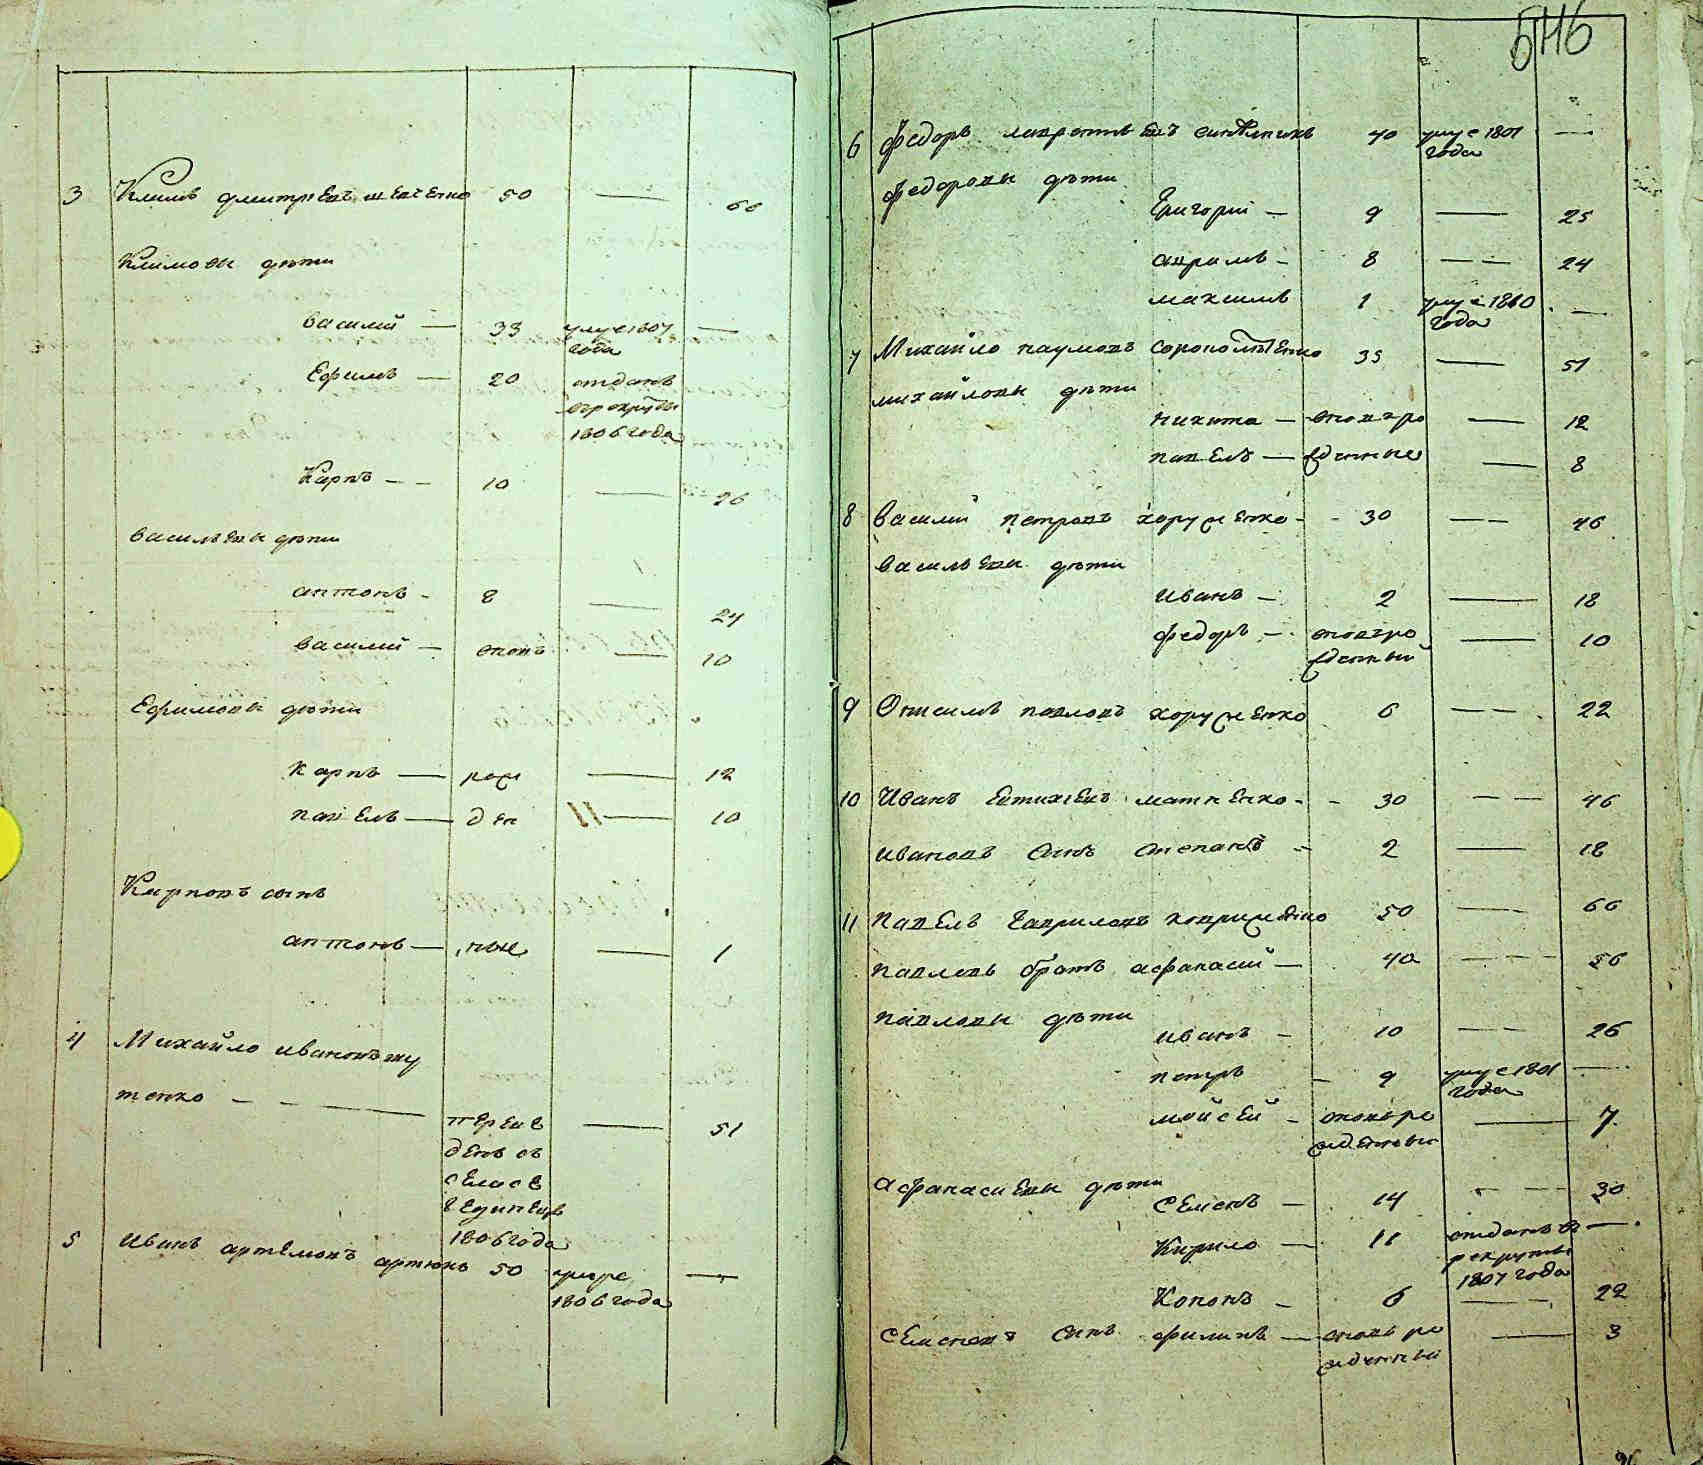 5Н6
3 Климъ дмитриевъ шевченко 50 — 66
Климовы дѣти
василий — 33 умре 1807 —
года
Ефимъ — 20 отданъ
врекруты
1806 года
Карпъ — — 10 — 26
васильевы дѣти
антонъ - 8 — 24
василий — вновь — 10
Ефимовы дѣти
карпъ — рож — 12
павелъ — ден — 10
Карповъ сынъ
антонъ — ные — 1
4 Михайло ивановъ
тенко — — —
переве — 51
денъ въ
села
1806 года
5 иванъ артемовъ 50 умре —
1806 года
6 федоръ лаврентьевъ 40 умре 1801 —
года
федоровы дѣти
Григорий — 9 — 25
авримъ - 8 — — 24
максимъ 1 умре —
года
7 Михайло наумовъ 35 — 51
михайловы дѣти
никита — вновь ро — 12
павелъ — жденные — 8
8 василий петровъ хоруженко - - 30 — — 46
васильевы дѣти
иванъ — 2 — 18
федоръ — вновь ро — 10
жденный
9 Онисимъ павловъ хоруженко 6 — — 22
10 Иванъ евтихиевъ матвенко - - 30 — — 46
ивановъ сынъ степанъ - 2 — 18
11 павелъ гавриловъ 50 — — 66
павловъ братъ афанасий — 40 — — — 56
павловы дѣти
иванъ — 10 — — 26
петръ — 9 умре 1801 —
года
мойсей — вновь ро — 7
жденный
афанасиевы дѣти
Семенъ — 14 — — 30
Кирило — 11 отданъ в —
рекруты
1807 года
Кононъ — 6 — 22
Семеновъ сынъ филипъ — вновь ро — 3
жденный